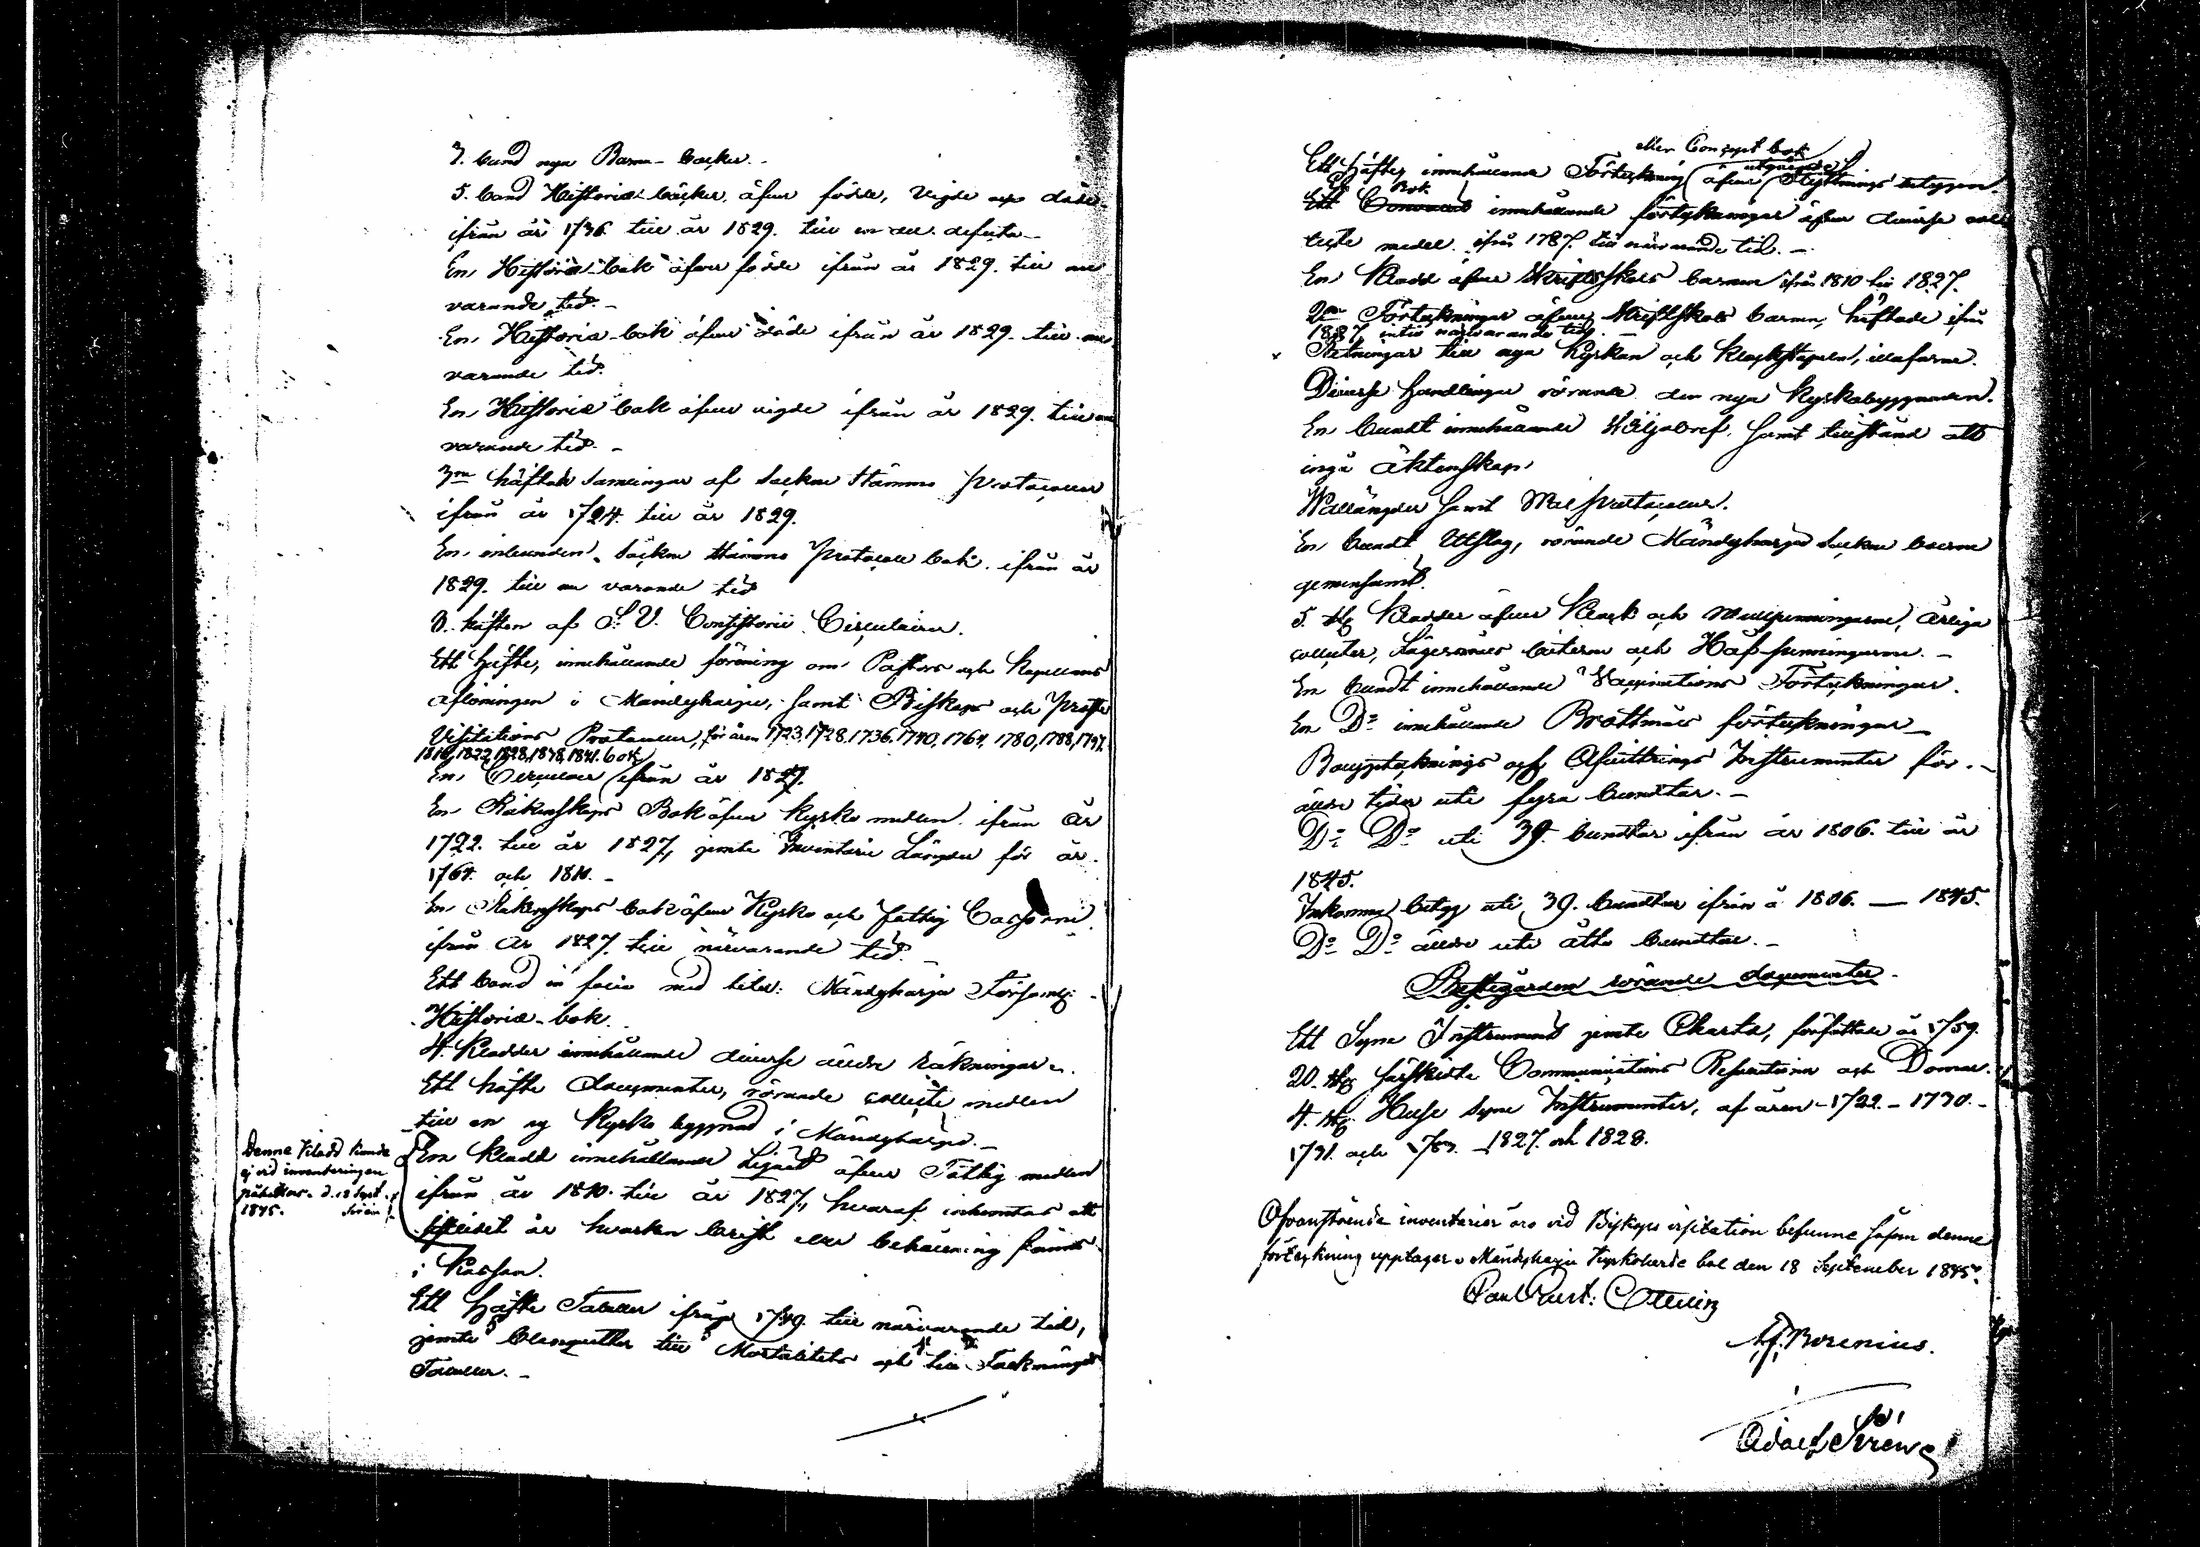 3. band nya Barna-böcker.-
5. band Historiæ-böcker, öfver födde, Vigde och döde
ifrån år 1736. till år 1829. till en del defecta.-
En Historiæ-bok öfver födde ifrån år 1829. till nu
varande tid.-
En Historiæ-bok öfver döde ifrån år 1829. till nu
varande tid.
En Historiæ bok öfver vigde ifrån år 1829. till nu
varande tid.-
3ne häftade samlingar af Sockne Stämmo Protocoller
ifrån år 1724. till år 1829.
En inbunden Sockne Stämmo Protocolls bok. ifrån år
1829. till nu varande tid
8. häften af S. V. Consistorii Circulairer.
Ett häfte, innehållande förening om Pastors och Kapellans
aflöningen i Mändyharju, samt Biskops och Prosts
Visitations Protocoller, för åren 1723, 1728, 1736, 1740, 1764, 1780, 1788, 1797,
1818, 1822, 1828, 1838, 1841. bok
En Circulair ifrån år 1827.
En Räkenskaps Bok öfver Kyrko medlen ifrån år
1722. till år 1827, jemte Inventarii Längder för år
1764. och 1810.-
En Räkenskaps bok öfver Kyrko och Fattig Cassorne
ifrån år 1827. till närvarande tid.
Ett band in folio med titel: Mändyharju Församlg:
Historiæ-bok.
4. Kladdar innehållande diverse äldre räkningar.
Ett häfte documenter, rörande collecte medlen
till en ny Kyrko byggnad i Mändyharju.-
Denne Kladd kunde
ej vid inventeringen
påhittas. d. 18 Sept.
1845. Sirén
En Kladd innehållande öfver Fattig medlen
ifrån år 1810. till år 1827, hvaraf inhemtas att
är hvarken brist eller behållning fanns
i Kassan.
Ett häfte Tabeller ifrån 1749. till närvarande tid,
jemte blanquetter till Mortalitets och till Folkmängds
Tabeller.-
eller Concept bok
Ett häfte, innehållande Förteckning öfver utgångne Flyttnings betygen.
Bok
Ett innehållande förteckningar öfver diverse collecte
medel. ifrån 1787. till närvarande tid.-
En Kladd öfver Skriftskols barnen ifrån 1810 till 1827.
2ne Förteckningar öfver Skriftskols barnen, häftade ifrån
1827, intill närvarande tid.
Ritningar till nya Kyrkan och Klockstapeln, illa farne.
Diverse handlingar rörande den nya Kyrkobyggnaden.
En bundt innehållande Wiljobref, samt tillstånd att
ingå Äktenskap.
Wallängder samt Wal protocoller.
En bundt Utslag, rörande Mändyharju Sockne boerne
gemensamt.
5. st. Kladdar öfver Klock och Mullpenningarne, årliga
collecter, Lägersmåls böterne och Håf-penningarne.-
En bundt innehållande Vaccinations Förteckningar.
En Do innehållande Brottmåls förteckningar.-
Bouppteknings och Afvittrings Instrumenter för.-
äldre tider uti fyra bundtar.-
Do Do uti 39. bundtar ifrån år 1806. till år
1845.
Inkomna betyg uti 39. bundtar ifrån å 1806. — 1845.
Do Do äldre uti åtta bundtar.-
Prestgården rörande documenter.
Ett Syne Instrument jemte Charta, författade år 1759.
20. st. särskilta Communications Resolutioner och Domar.
4. st. Huse Syne Instrumenter, af åren -1722.-1730.-
1731. och 1783. -1827. och 1828.
Ofvanstående inventarier äro vid Biskops visitation befunne såsom denne
förteckning upptager. Mändyharju Kyrkoherde bol den 18 September 1845.
A. J. Borenius.
Adolf Sirén